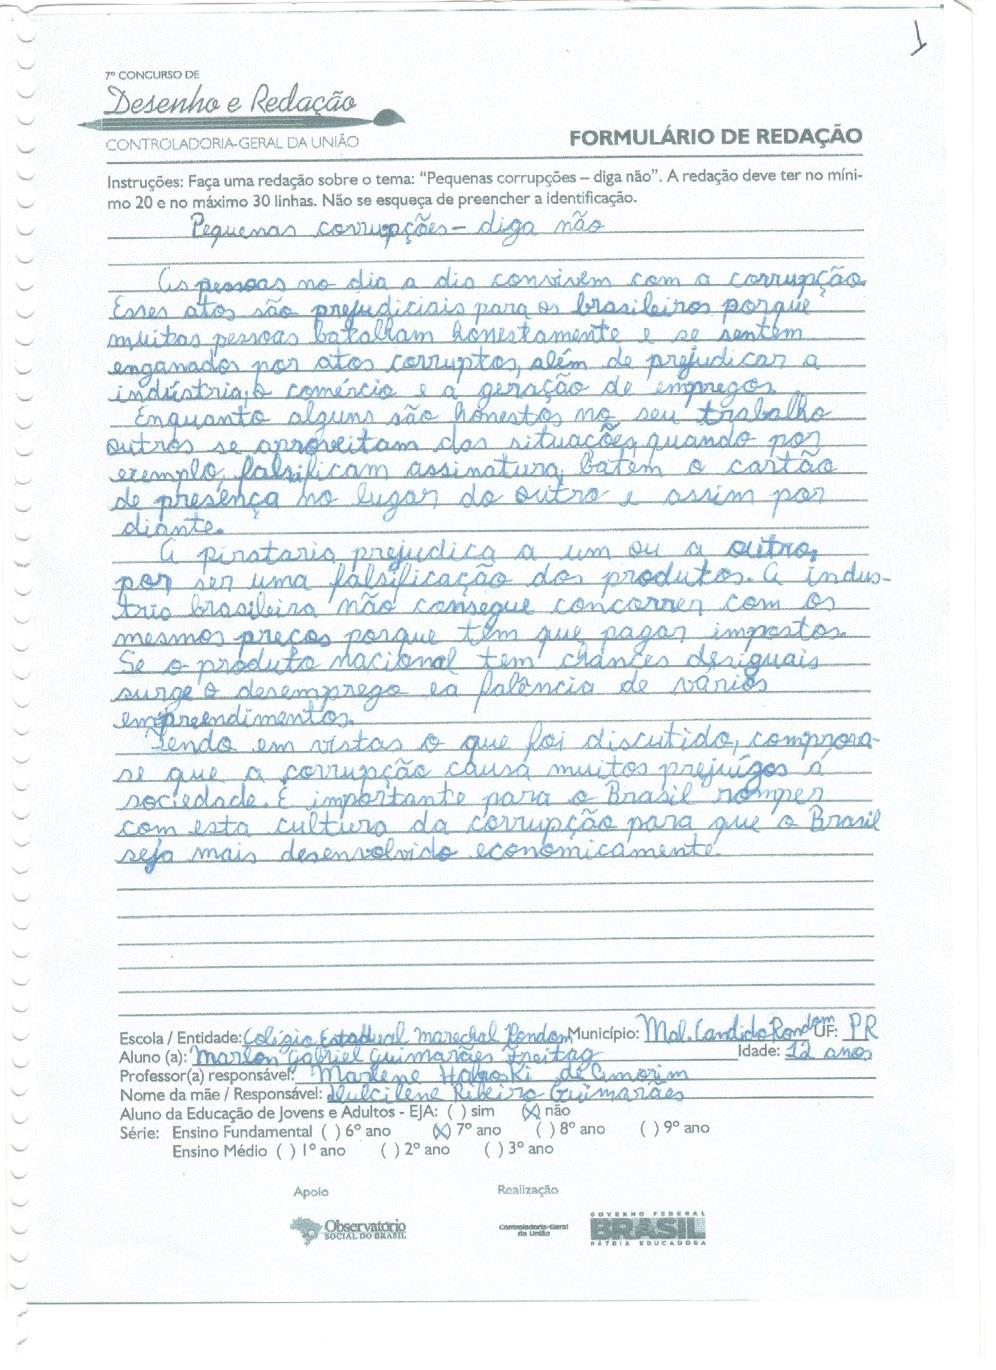 1
7º CONCURSO DE
Desenho e Redação
CONTROLADORIA-GERAL DA UNIÃO
FORMULÁRIO DE REDAÇÃO
Instruções: Faça uma redação sobre o tema: “Pequenas corrupções – diga não”. A redação deve ter no míni-
mo 20 e no máximo 30 linhas. Não se esqueça de preencher a identificação.
Pequenas corrupções – diga não
As pessoas no dia a dia convivem com a corrupção.
Esses atos são prejudiciais para os brasileiros porque
muitas pessoas batalham honestamente e se sentem
enganados por atos corruptos, além de prejudicar a
indústria, o comércio e a geração de empregos.
Enquanto alguns são honestos no seu trabalho
outros se aproveitam das situações, quando por
exemplo, falsificam assinatura, batem o cartão
de presença no lugar do outro e assim por
diante.
A pirataria prejudica a um ou a outro,
por ser uma falsificação dos produtos. A indus-
tria brasileira não consegue concorrer com os
mesmos preços porque têm que pagar impostos.
Se o produto nacional tem chances desiguais
surge o desemprego e a falência de vários
empreendimentos.
Tendo em vistas o que foi discutido, comprova-
se que a corrupção causa muitos prejuízos á
sociedade. É importante para o Brasil romper
com esta cultura da corrupção para que o Brasil
seja mais desenvolvido economicamente.
Escola / Entidade: Colégio Estadual Marechal Rondon Município: Mal. Candido Rondom UF: PR
Aluno (a): Marlon Gabriel Guimarães Freitag Idade: 12 anos
Professor(a) responsável: Marlene de Amorim
Nome da mãe / Responsável: Dulcilene Ribeiro Guimarães
Aluno da Educação de Jovens e Adultos - EJA: ( ) sim (X) não
Série: Ensino Fundamental ( ) 6º ano (X) 7º ano ( ) 8º ano ( ) 9º ano
Ensino Médio ( ) 1º ano ( ) 2º ano ( ) 3º ano
Apoio Realização
Observatório
SOCIAL DO BRASIL
Controladoria-Geral
da União
GOVERNO FEDERAL
BRASIL
PÁTRIA EDUCADORA